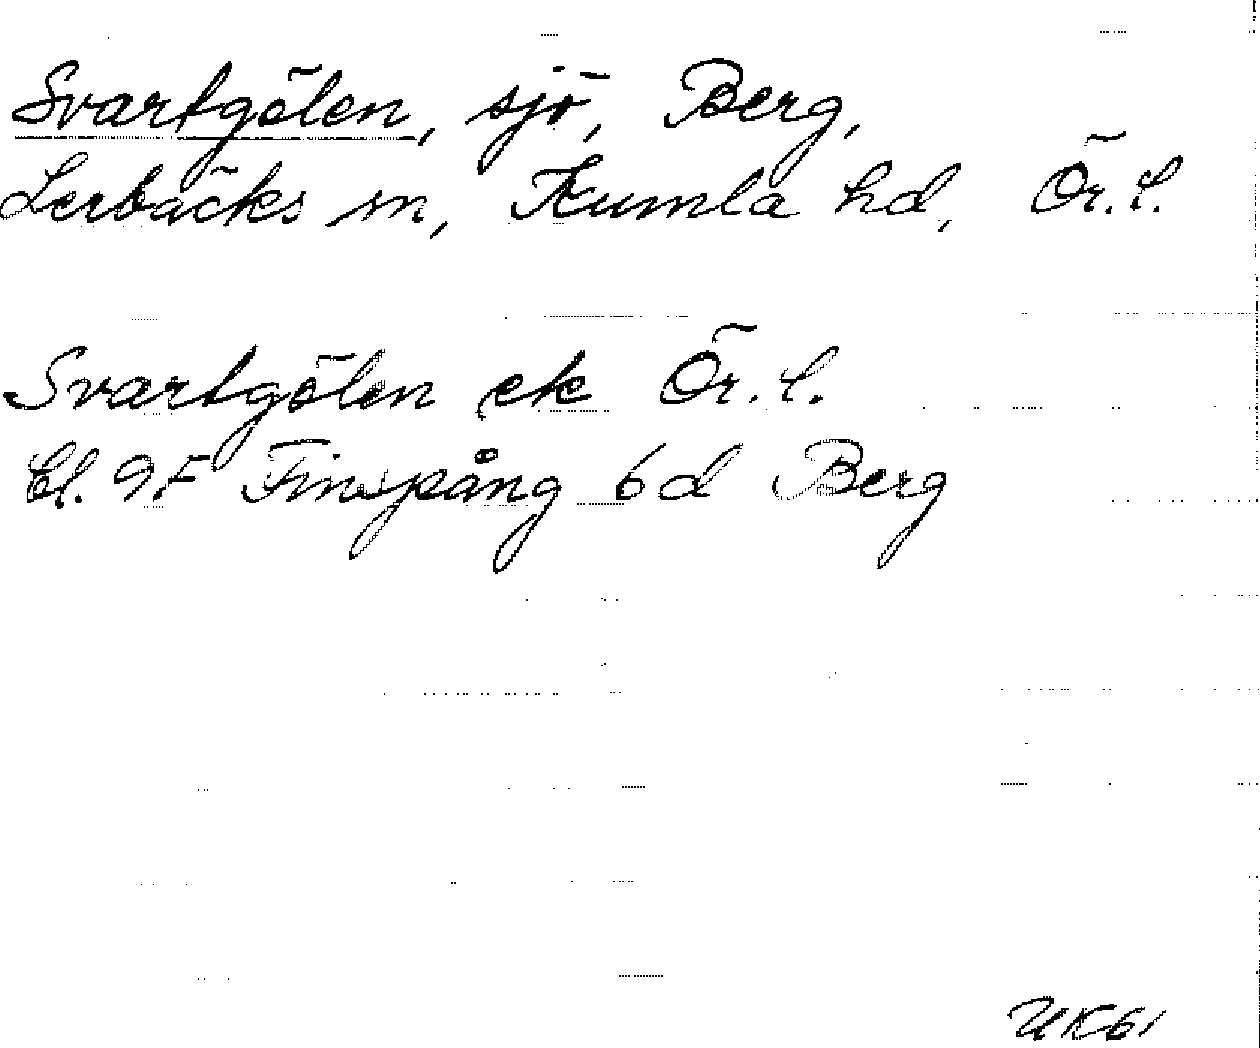 Svartgölen, sjö, Berg,
Lerbäcks sn, Kumla hd, Ör. l.
Svartgölen ek Ör. l.
Bl. 9F Finspång 6d Berg
UK61